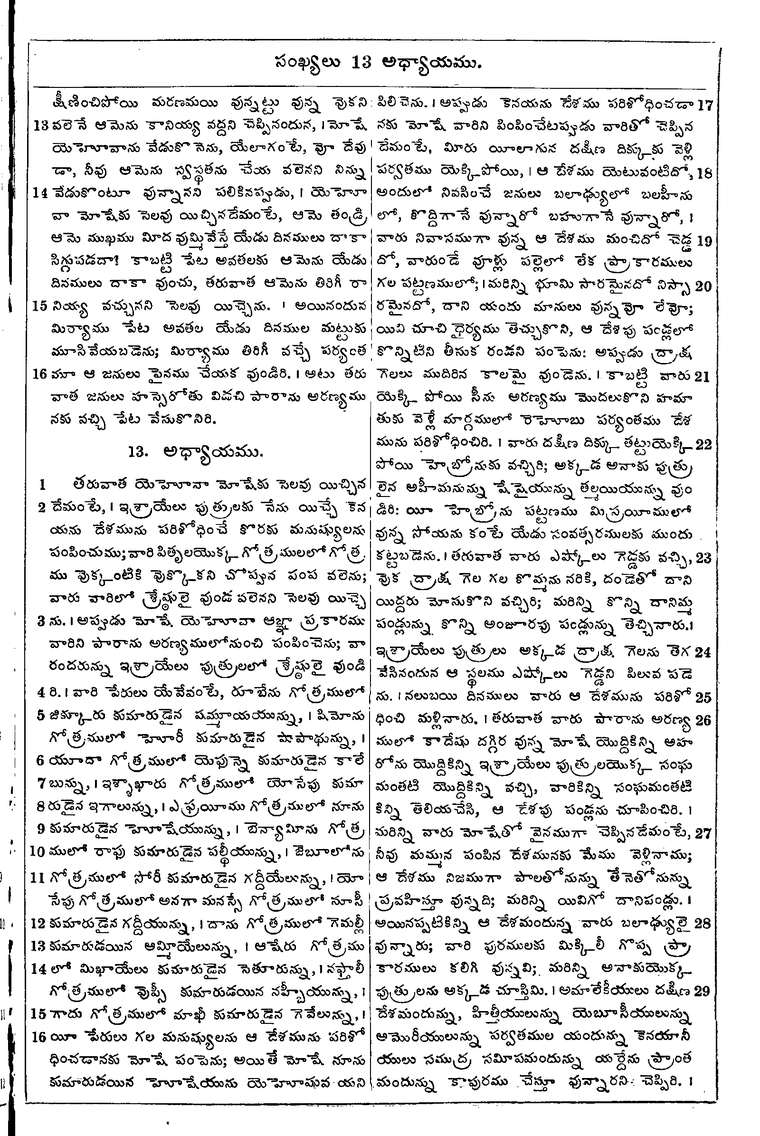 సంఖ్యలు 13 అధ్యాయము.
క్షీణించిపోయి మరణమయి వున్నట్టు వున్న వొకని
13 వలెనే ఆమెను కానియ్య వద్దని చెప్పినందున, । మోషే
యెహోవాను వేడుకొనెను, యేలాగంటే, వో దేవు
డా, నీవు ఆమెను స్వస్థతను చేయ వలెనని నిన్ను
14 వేడుకొంటూ వున్నానని పలికినప్పుడు, । యెహో
వా మోషేకు సెలవు యిచ్చినదేమంటే, ఆమె తండ్రి
ఆమె ముఖము మీద వుమ్మివేస్తే యేడు దినములు దాకా
సిగ్గుపడదా! కాబట్టి పేట అవతలకు ఆమెను యేడు
దినములు దాకా వుంచు, తరువాత ఆమెను తిరిగీ రా
15 నియ్య వచ్చునని సెలవు యిచ్చెను. । అయినందున
మిర్యాము పేట అవతల యేడు దినముల మట్టుకు
మూసివేయబడెను; మిర్యాము తిరిగీ వచ్చే పర్యంత
16 మూ ఆ జనులు పైనము చేయక వుండిరి. । అటు తరు
వాత జనులు హస్సెరోతు విడచి పారాను అరణ్యము
నకు వచ్చి పేట వేసుకొనిరి.
13. అధ్యాయము.
1 తరువాత యెహోవా మోషేకు సెలవు యిచ్చిన
2 దేమంటే, । ఇశ్రాయేలు పుత్రులకు నేను యిచ్చే కెన
యను దేశమును పరిశోధించే కొరకు మనుష్యులను
పంపించుము; వారి పితృలయొక్క గోత్రములలో గోత్ర
ము వొక్కంటికి వొక్కొకని చొప్పున పంప వలెను;
వారు వారిలో శ్రేష్ఠులై వుండ వలెనని సెలవు యిచ్చె
3 ను. । అప్పుడు మోషే యెహోవా ఆజ్ఞా ప్రకారము
వారిని పారాను అరణ్యములోనుంచి పంపించెను; వా
రందరున్ను ఇశ్రాయేలు పుత్రులలో శ్రేష్ఠులై వుండి
4 రి. । వారి పేరులు యేవేవంటే, రూబేను గోత్రములో
5 జిక్కూరు కుమారుడైన షమ్మూయయున్ను, । షిమోను
గోత్రములో హూరీ కుమారుడైన షాపాథున్ను, ।
6 యూదా గోత్రములో యెఫున్నె కుమారుడైన కాలే
7 బున్ను, । ఇశ్శాఖారు గోత్రములో యోసేపు కుమా
8 రుడైన ఇగాలున్ను, । ఎఫ్రయీము గోత్రములో నూను
9 కుమారుడైన హోషేయున్ను, । బెన్యామీను గోత్ర
10 ములో రాఫు కుమారుడైన పల్థీయున్ను, । జెబూలోను
11 గోత్రములో సోరీ కుమారుడైన గద్దీయేలున్ను, । యో
సేపు గోత్రములో అనగా మనస్సే గోత్రములో సూసీ
12 కుమారుడైన గద్దీయున్ను, । దాను గోత్రములో గెమల్లీ
13 కుమారుడయిన ఆమ్మీయేలున్ను, । ఆషేరు గోత్రము
14 లో మిఖాయేలు కుమారుడైన సెతూరున్ను, । నఫ్తాలీ
గోత్రములో వుప్సీ కుమారుడయిన నహ్బీయున్ను, ।
15 గాదు గోత్రములో మాఖీ కుమారుడైన గెవేలున్ను, ।
16 యీ పేరులు గల మనుష్యులను ఆ దేశమును పరిశో
ధించడానకు మోషే పంపెను; అయితే మోషే నూను
కుమారుడయిన హోషేయును యెహోషువ యని
పిలిచెను. । అప్పుడు కెనయను దేశము పరిశోధించడా 17
నకు మోషే వారిని పింపించేటప్పుడు వారితో చెప్పిన
దేమంటే, మీరు యీలాగున దక్షిణ దిక్కుకు వెళ్లి
పర్వతము యెక్కిపోయి, । ఆ దేశము యెటువంటిదో, 18
అందులో నివసించే జనులు బలాఢ్యులో బలహీను
లో, కొద్దిగానే వున్నారో బహుగానే వున్నారో, ।
వారు నివాసముగా వున్న ఆ దేశము మంచిదో చెడ్డ 19
దో, వారుండే వూళ్లు పల్లెలో లేక ప్రాకారములు
గల పట్టణములో; । మరిన్ని భూమి సారమైనదో నిస్సా 20
రమైనదో, దాని యందు మానులు వున్నవో లేవో;
యివి చూచి ధైర్యము తెచ్చుకొని, ఆ దేశపు పండ్లలో
కొన్నిటిని తీసుక రండని పంపెను: అప్పుడు ద్రాక్ష
గెలలు ముదిరిన కాలమై వుండెను. । కాబట్టి వారు 21
యెక్కి పోయి సీను అరణ్యము మొదలుకొని హమా
తుకు వెళ్లే మార్గములో రెహోబు పర్యంతము దేశ
మును పరిశోధించిరి. । వారు దక్షిణ దిక్కు తట్టుయెక్కి 22
పోయి హెబ్రోనుకు వచ్చిరి; అక్కడ అనాకు పుత్రు
లైన అహీమనున్ను షేషైయున్ను తల్మయియున్ను వుం
డిరి: యీ హెబ్రోను పట్టణము మిస్రయీములో
వున్న సోయను కంటే యేడు సంవత్సరములకు ముందు
కట్టబడెను. । తరువాత వారు ఎష్కోలు గెడ్డకు వచ్చి, 23
వొక ద్రాక్ష గెల గల కొమ్మను నరికి, దండెతో దాని
యిద్దరు మోసుకొని వచ్చిరి; మరిన్ని కొన్ని దానిమ్మ
పండ్లున్ను కొన్ని అంజూరపు పండ్లున్ను తెచ్చినారు. ।
ఇశ్రాయేలు పుత్రులు అక్కడ ద్రాక్ష గెలను తెగ 24
వేసినందున ఆ స్థలము ఎష్కోలు గెడ్డని పిలువ పడె
ను. । నలుబయి దినములు వారు ఆ దేశమును పరిశో 25
ధించి మళ్లినారు. । తరువాత వారు పారాను అరణ్య 26
ములో కాదేషు దగ్గిర వున్న మోషే యొద్దికిన్ని అహ
రోను యొద్దికిన్ని ఇశ్రాయేలు పుత్రులయొక్క సంఘ
మంతటి యొద్దికిన్ని వచ్చి, వారికిన్ని సంఘమంతటి
కిన్ని తెలియచేసి, ఆ దేశపు పండ్లను చూపించిరి. ।
మరిన్ని వారు మోషేతో వైనముగా చెప్పినదేమంటే, 27
నీవు మమ్మున పంపిన దేశమునకు మేము వెళ్లినాము;
ఆ దేశము నిజముగా పాలతోనున్ను తేనెతోనున్ను
ప్రవహిస్తూ వున్నది; మరిన్ని యివిగో దానిపండ్లు. ।
అయినప్పటికిన్ని ఆ దేశమందున్న వారు బలాఢ్యులై 28
వున్నారు; వారి పురములకు మిక్కిలీ గొప్ప ప్రా
కారములు కలిగి వున్నవి; మరిన్ని అనాకుయొక్క
పుత్రులను అక్కడ చూస్తిమి. । అమాలేకీయులు దక్షిణ 29
దేశమందున్ను, హిత్తీయులున్ను యెబూసీయులున్ను
అమొరీయులున్ను పర్వతముల యందున్ను కెనయానీ
యులు సముద్ర సమీపమందున్ను యర్దేను ప్రాంత
మందున్ను కాపురము చేస్తూ వున్నారని చెప్పిరి. ।